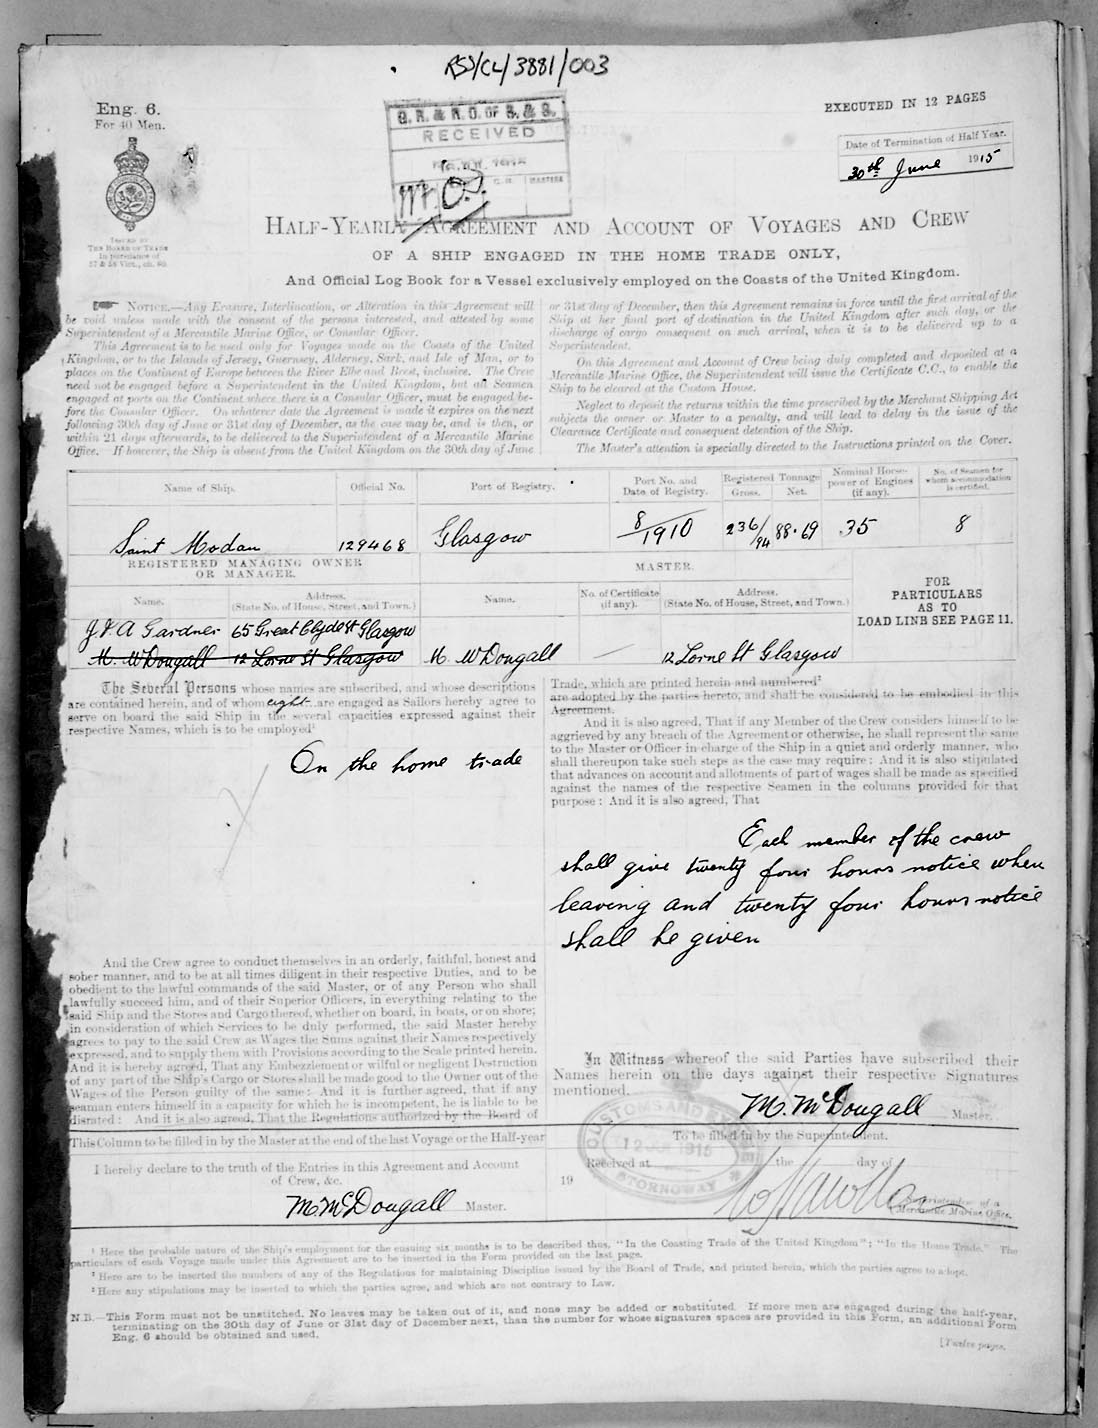 RSS/CL/3881/003
Eng. 6.
For 40 Men.
ISSUED BY
THE BOARD OF TRADE
In pursuance of
57 & 58 Vict., ch. 60.
G. R. & R. O. OF S. & S.
RECEIVED
EXECUTED IN 12 PAGES
Date of Termination of Half Year.
30th June 1915
HALF-YEARLY AGREEMENT AND ACCOUNT OF VOYAGES AND CREW
OF A SHIP ENGAGED IN THE HOME TRADE ONLY,
And Official Log Book for a Vessel exclusively employed on the Coasts of the United Kingdom.
NOTICE.—Any Erasure, Interlineation, or Alteration in this Agreement will
be void unless made with the consent of the persons interested, and attested by some
Superintendent of a Mercantile Marine Office, or Consular Officer.
This Agreement is to be used only for Voyages made on the Coasts of the United
Kingdom, or to the Islands of Jersey, Guernsey, Alderney, Sark, and Isle of Man, or to
places on the Continent of Europe between the River Elbe and Brest, inclusive. The Crew
need not be engaged before a Superintendent in the United Kingdom, but all Seamen
engaged at ports on the Continent where there is a Consular Officer, must be engaged be-
fore the Consular Officer. On whatever date the Agreement is made it expires on the next
following 30th day of June or 31st day of December, as the case may be, and is then, or
within 21 days afterwards, to be delivered to the Superintendent of a Mercantile Marine
Office. If however, the Ship is absent from the United Kingdom on the 30th day of June
or 31st day of December, then this Agreement remains in force until the first arrival of the
Ship at her final port of destination in the United Kingdom after such day, or the
discharge of cargo consequent on such arrival, when it is to be delivered up to a
Superintendent.
On this Agreement and Account of Crew being duly completed and deposited at a
Mercantile Marine Office, the Superintendent will issue the Certificate C.C., to enable the
Ship to be cleared at the Custom House.
Neglect to deposit the returns within the time prescribed by the Merchant Shipping Act
subjects the owner or Master to a penalty, and will lead to delay in the issue of the
Clearance Certificate and consequent detention of the Ship.
The Master's attention is specially directed to the Instructions printed on the Cover.
Name of Ship. Official No. Port of Registry. Port No. and Date of Registry. Registered Tonnage Gross. Net. Nominal Horse-power of Engines (if any). No. of Seamen for whom accommodation is certified.
Saint Modan 129468 Glasgow 8/1910 236/94 88.69 35 8
REGISTERED MANAGING OWNER
OR MANAGER.
MASTER.
FOR
PARTICULARS
AS TO
LOAD LINE SEE PAGE 11.
Name. Address. (State No. of House, Street, and Town.) Name. No. of Certificate (if any). Address. (State No. of House, Street, and Town.)
J & A Gardner 65 Great Clyde St Glasgow
M. McDougall 12 Lorne St Glasgow M. McDougall — 12 Lorne St Glasgow
The Several Persons whose names are subscribed, and whose descriptions
are contained herein, and of whom eight are engaged as Sailors hereby agree to
serve on board the said Ship in the several capacities expressed against their
respective Names, which is to be employed¹
On the home trade
And the Crew agree to conduct themselves in an orderly, faithful, honest and
sober manner, and to be at all times diligent in their respective Duties, and to be
obedient to the lawful commands of the said Master, or of any Person who shall
lawfully succeed him, and of their Superior Officers, in everything relating to the
said Ship and the Stores and Cargo thereof, whether on board, in boats, or on shore;
in consideration of which Services to be duly performed, the said Master hereby
agrees to pay to the said Crew as Wages the Sums against their Names respectively
expressed, and to supply them with Provisions according to the Scale printed herein.
And it is hereby agreed, That any Embezzlement or wilful or negligent Destruction
of any part of the Ship's Cargo or Stores shall be made good to the Owner out of the
Wages of the Person guilty of the same: And it is further agreed, that if any
seaman enters himself in a capacity for which he is incompetent, he is liable to be
disrated: And it is also agreed, That the Regulations authorized by the Board of
Trade, which are printed herein and numbered²
are adopted by the parties hereto, and shall be considered to be embodied in this
Agreement.
And it is also agreed, That if any Member of the Crew considers himself to be
aggrieved by any breach of the Agreement or otherwise, he shall represent the same
to the Master or Officer in charge of the Ship in a quiet and orderly manner, who
shall thereupon take such steps as the case may require: And it is also stipulated
that advances on account and allotments of part of wages shall be made as specified
against the names of the respective Seamen in the columns provided for that
purpose: And it is also agreed, That
Each member of the crew
shall give twenty four hours notice when
leaving and twenty four hours notice
shall be given
In Witness whereof the said Parties have subscribed their
Names herein on the days against their respective Signatures
mentioned.
M. McDougall Master.
This Column to be filled in by the Master at the end of the last Voyage or the Half-year
I hereby declare to the truth of the Entries in this Agreement and Account
of Crew, &c.
M McDougall Master.
To be filled in by the Superintendent.
Received at the day of
19
Superintendent of a
Mercantile Marine Office.
CUSTOMS AND EXCISE
1915
STORNOWAY
¹ Here the probable nature of the Ship's employment for the ensuing six months is to be described thus, "In the Coasting Trade of the United Kingdom"; "In the Home Trade." The
particulars of each Voyage made under this Agreement are to be inserted in the Form provided on the last page.
² Here are to be inserted the numbers of any of the Regulations for maintaining Discipline issued by the Board of Trade, and printed herein, which the parties agree to adopt.
³ Here any stipulations may be inserted to which the parties agree, and which are not contrary to Law.
N.B.—This Form must not be unstitched. No leaves may be taken out of it, and none may be added or substituted. If more men are engaged during the half-year,
terminating on the 30th day of June or 31st day of December next, than the number for whose signatures spaces are provided in this Form, an additional Form
Eng. 6 should be obtained and used.
[Twelve pages.